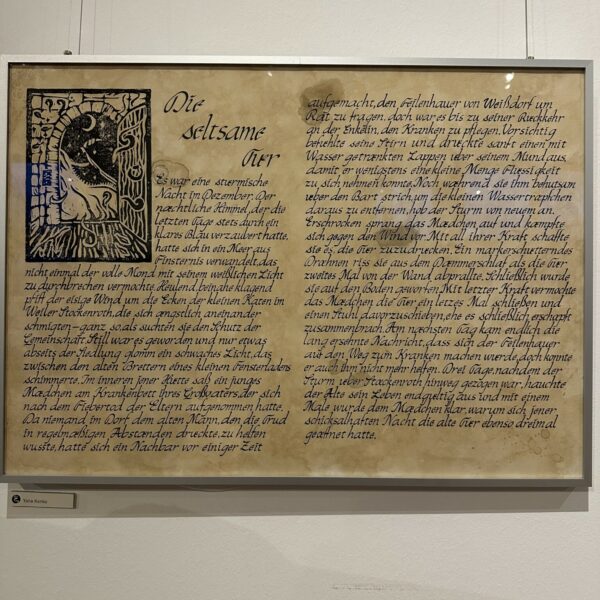 Die
seltsame
Tier
Es war eine stuermische
Nacht im Dezember. Der
næchtliche Himmel, der die
letzten Tage stets durch ein
klares Blau verzaubert hatte,
hatte sich in ein Meer aus
Finsternis verwandelt, das
nicht einmal der volle Mond mit seinem weißlichen Licht
zu durchbrechen vermochte. Heulend, beinahe klagend
pfiff der eisige Wind um die Ecken der kleinen Katen im
Weiler Stockenroth, die sich ængstlich aneinander
schmiegten - ganz so, als suchten sie den Schutz der
Gemeinschaft. Still war es geworden und nur etwas
abseits der Siedlung glomm ein schwaches Licht, das
zwischen den alten Brettern eines kleinen Fensterladens
schimmerte. Im inneren jener Huette saß ein junges
Mædchen am Krankenbett ihres Großvaters, der sich
nach dem Fiebertod der Eltern aufgenommen hatte.
Da niemand im Dorf dem alten Mann, den die Trud
in regelmæßigen Abstænden drueckte, zu helfen
wusste, hatte sich ein Nachbar vor einiger Zeit
aufgemacht, den Feilenhauer von Weißdorf um
Rat zu fragen, doch war es bis zu seiner Rueckkehr
an der Enkelin, den Kranken zu pflegen. Vorsichtig
befuehlte seine Stirn und drueckte sanft einen mit
Wasser getrænkten Lappen ueber seinem Mund aus,
damit er wenigstens eine kleine Menge Fluessigkeit
zu sich nehmen konnte. Noch wæhrend sie ihm behutsam
ueber den Bart strich, um die kleinen Wassertrœpfchen
daraus zu entfernen, hob der Sturm von neuem an.
Erschrocken sprang das Mædchen auf und kæmpfte
sich gegen den Wind vor. Mit all ihrer Kraft schaffte
sie es, die Tier zuzudruecken. Ein markerschuetterndes
Drœhnen riss sie aus dem Dæmmerschlaf, als die Tier
zweites Mal von der Wand abprallte. Schließlich wurde
sie auf den Boden geworfen. Mit letzter Kraft vermochte
das Mædchen die Tier ein letzes Mal schließen und
einen Stuhl davorzuschieben, ehe es schließlich erschœpft
zusammenbrach. Am næchsten Tag kam endlich die
lang ersehnte Nachricht, dass sich der Feilenhauer
auf den Weg zum Kranken machen wuerde, doch konnte
er auch ihm nicht mehr helfen. Drei Tage, nachdem der
Sturm ueber Stockenroth hinweg gezogen war, hauchte
der Alte sein Leben endgueltig aus und mit einem
Male wurde dem Mædchen klar, warum sich jener
schicksalhaften Nacht die alte Tier ebenso dreimal
geœffnet hatte.